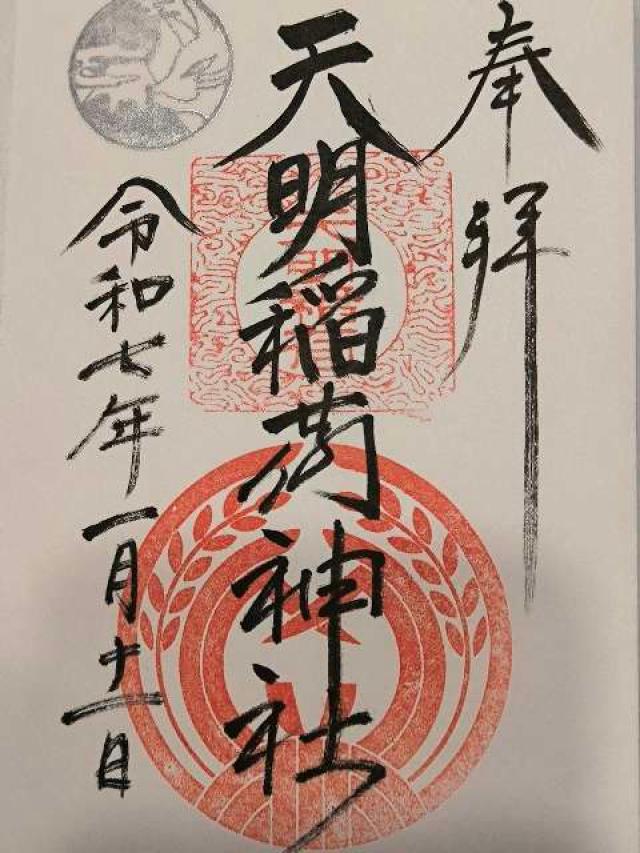 奉拝
天明稲荷神社
令和七年一月十一日